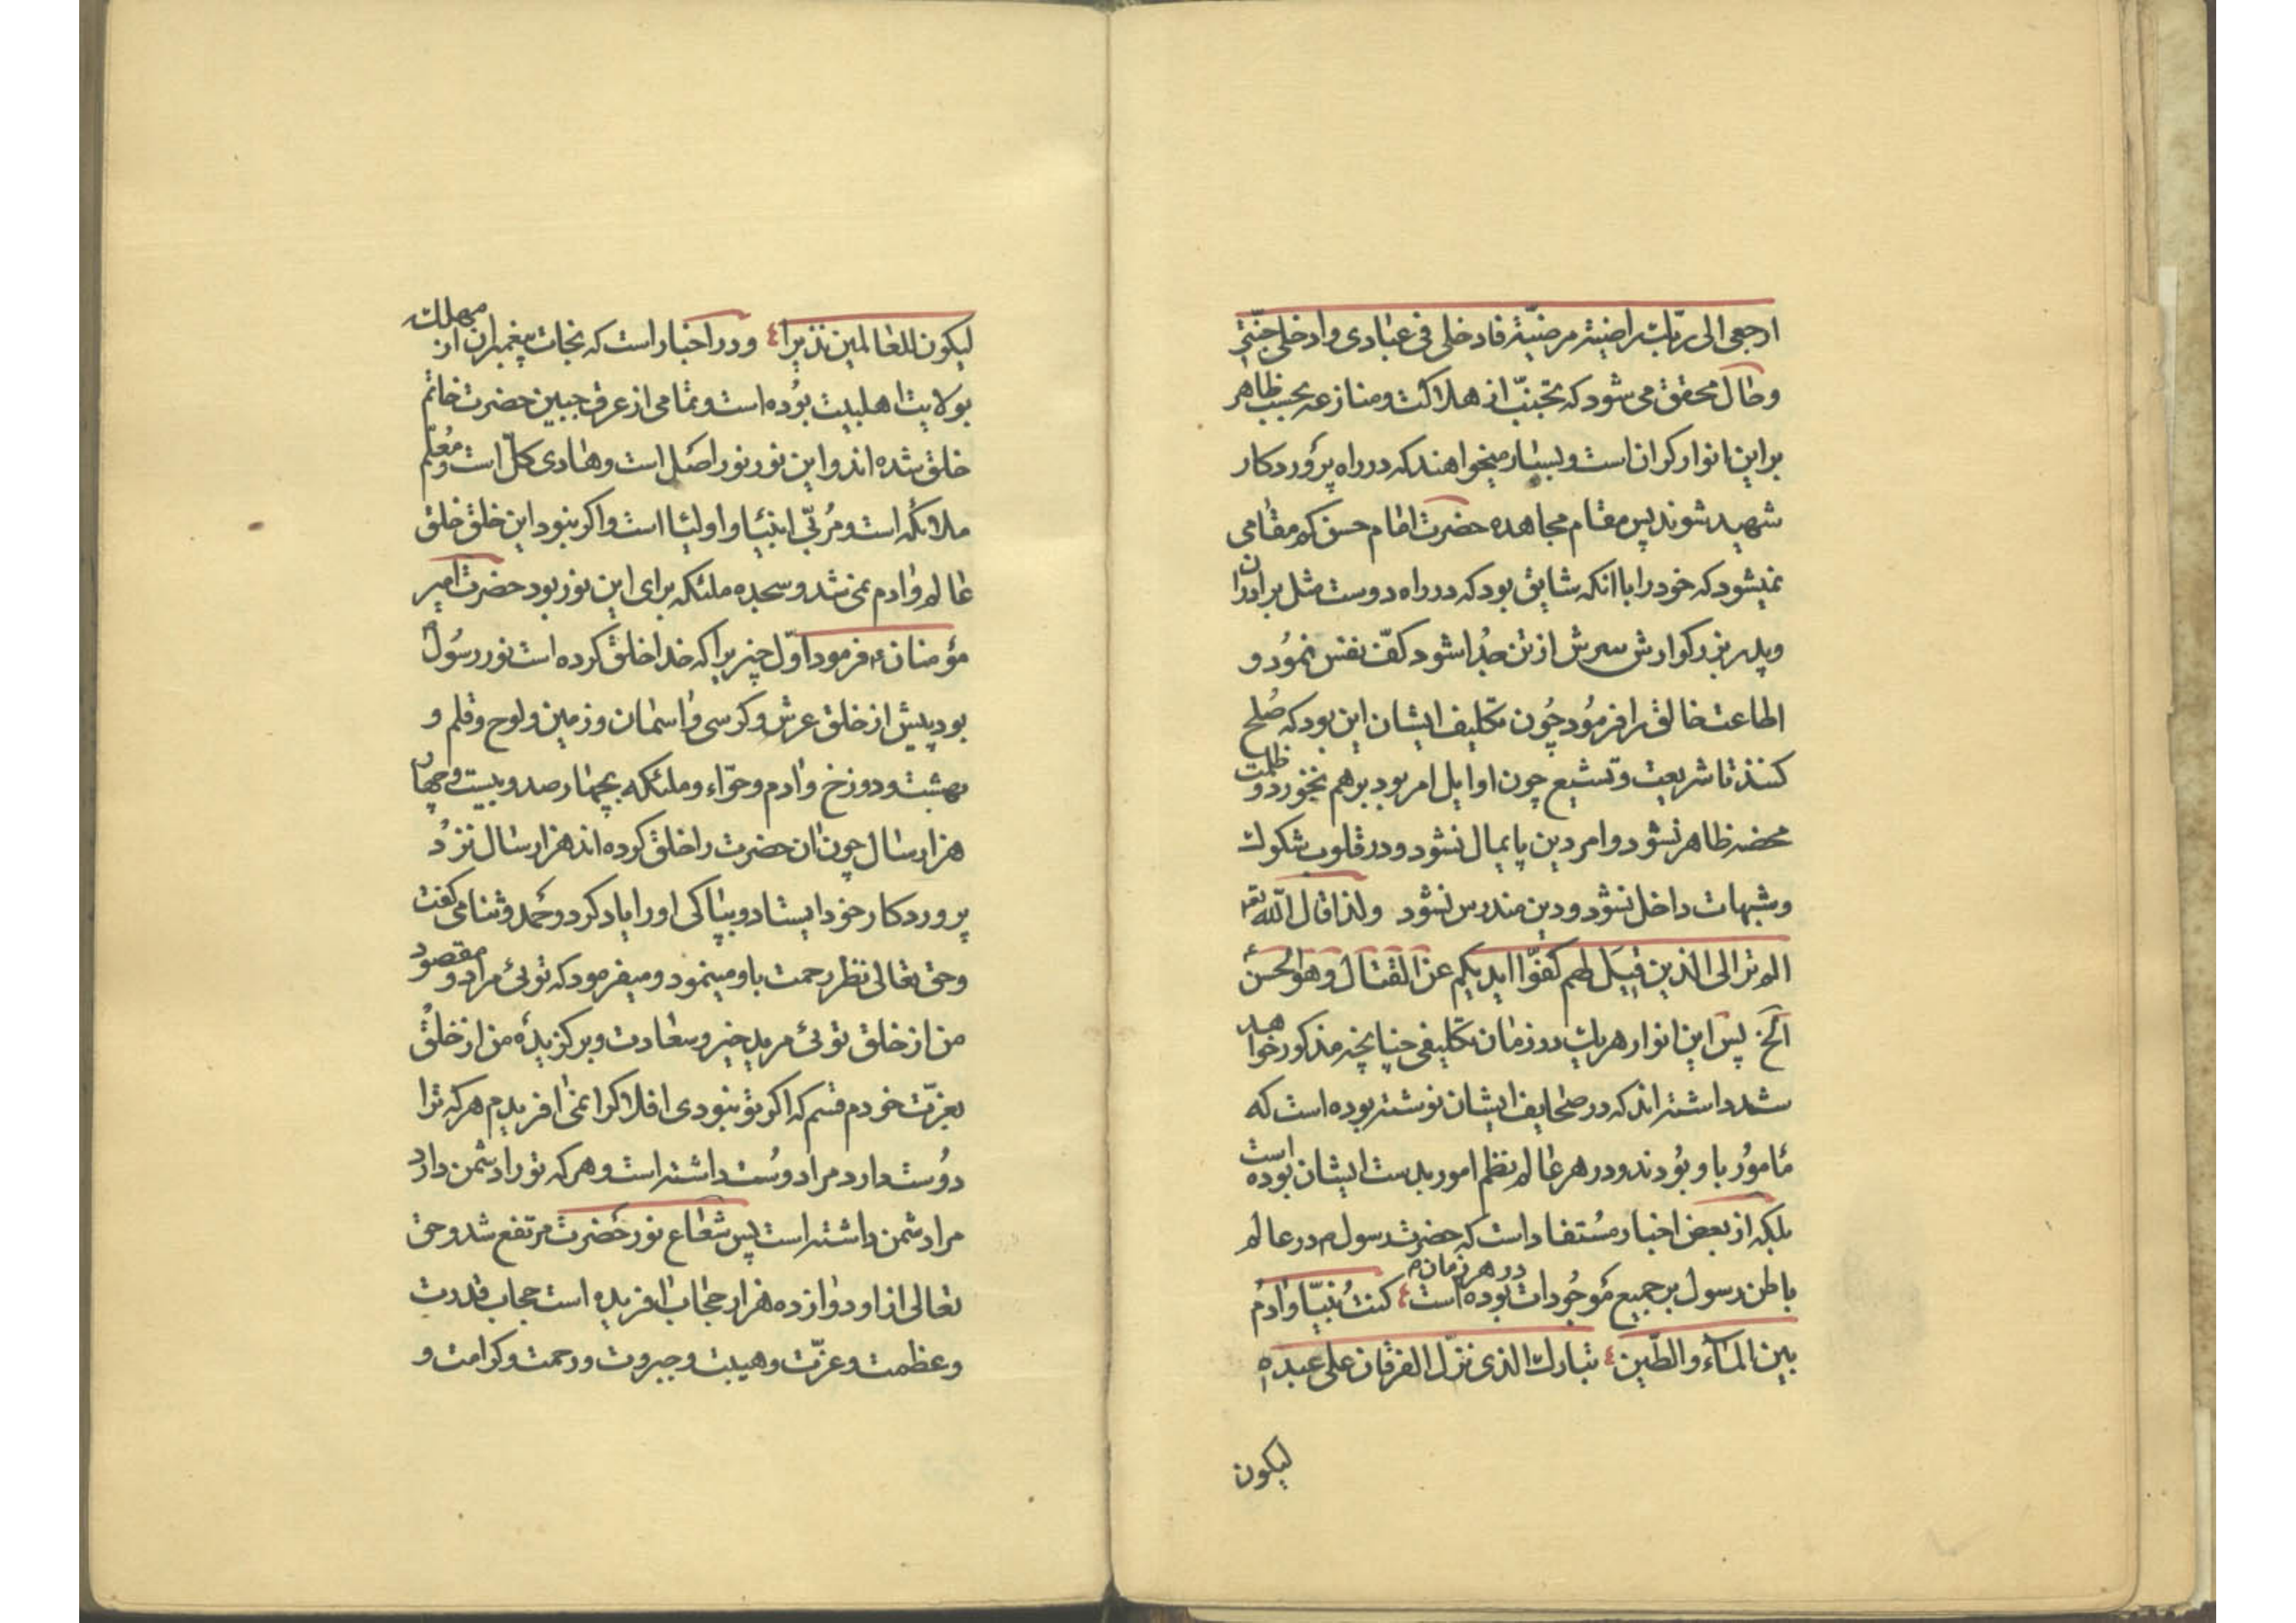 ارجعی الی ربّك راضیة مرضیّة فادخلی فی عبادی وادخلی جنّتی
وحال محقق می شود که تجنّب از هلاکت و منازعه بحسب ظاهر
بر این انوار کران است و بسیار میخواهند که در راه پروردکار
شهید شوند پس مقام مجاهده حضرت امام حسن که مقامی
نمیشود که خود را با انکه شایق بود که در راه دوست مثل برادران
و پدر بزرکوارش سرش از تن جُدا شود کفّ نفس نمُود و
اطاعت خالق را فرمُود چُون تکلیف ایشان این بود که صُلح
کنند تا شریعت و تشیع چون اوایل امر بود بر هم نخورد و ظلمت
محضه ظاهر نشود و امر دین پایمال نشود و در قلوب شکوك
و شبهات داخل نشود و دین مندرس نشود ولذا قال الله تعه
الم تر الی الذین قیل لهم کفّوا ایدیکم عن القتال وهو الحسن ع
الخ پس این انوار هریك در زمان تکلیفی چنانچه مذکور خواهد
شد داشته اند که در صحایف ایشان نوشته بوده است که
مامُور باو بُودند و در هر عالم نظم امور بدست ایشان بوده است
بلکه از بعض اخبار مُستفاد است که حضرت رسول ص در عالم
باطن رسول بر جمیع موجُودات در هر زمان بوده است کنتُ نبیّا وادمُ
بین المآء والطّین تبارك الذی نزّل الفرقان علی عبده
لیکون
لیکون للعالمین نذیرا و در اخبار است که نجات پیغمبران از مهلکه
بولایت اهلبیت بُوده است و تمامی از عرق جبین حضرت خاتم
خلق شده اند و این نور نور اصل است و هادی کلّ است و مُعلّم
ملائکه است و مُربّی انبیا و اولیا است و اکر نبود این خلق خلق
عالم وادم نمی شد و سجده ملئکه برای این نور بود حضرت امیر
مؤمنان ع فرمود اوّل چیزیرا که خدا خلق کرده است نور رسُول ص
بود پیش از خلق عرش و کرسی و اسمان و زمین و لوح و قلم و
بهشت و دوزخ و ادم و حوّاء و ملئکه بچهار صد و بیست و چهار
هزار سال چون ان حضرت را خلق کرده اند هزار سال نزد
پروردکار خود ایستاد و بپاکی او را یاد کرد و حمد و ثنا می کفت
و حق تعالی نظر رحمت باو مینمود و میفرمود که توئی مراد و مقصود
من از خلق توئی مرید خیر و سعادت و برکزیدۀ من از خلق
بعزّت خودم قسم که اکر تو نبودی افلاك را نمی افریدم هر که ترا
دوُست دارد مرا دوُست داشته است و هر که تو را دشمن دارد
مرا دشمن داشته است پس شعاع نور حضرت مرتفع شد و حق
تعالی از او دوازده هزار حجاب افریده است حجاب قدرت
و عظمت و عزّت و هیبت و جبروت و رحمت و کرامت و